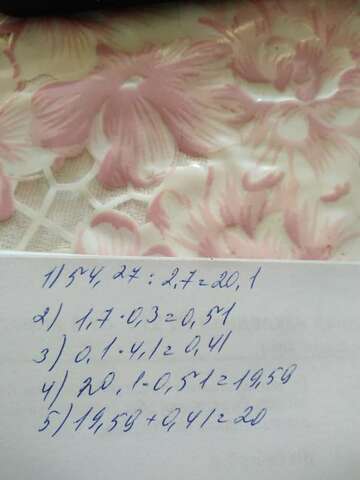 1) 54,27 : 2,7 = 20,1
2) 1,7 · 0,3 = 0,51
3) 0,1 · 4,1 = 0,41
4) 20,1 - 0,51 = 19,59
5) 19,59 + 0,41 = 20